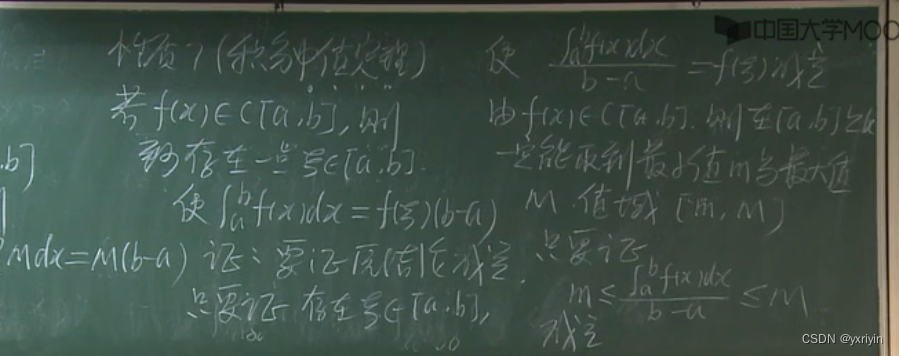 性质7(积分中值定理)
若f(x)∈C[a,b],则
到少存在一点ξ∈[a,b].
使∫ₐᵇf(x)dx=f(ξ)(b-a)
证:要证原结论成立,
只要证存在ξ∈[a,b],
使 ∫ₐᵇf(x)dx/(b-a) =f(ξ)成立
由f(x)∈C[a,b].则在[a,b]上
一定能取到最小值m与最大值
M.值域[m,M]
只要证
m≤ ∫ₐᵇf(x)dx/(b-a) ≤M
成立
.b]
Mdx=M(b-a)
中国大学MOO
CSDN @yxriyin